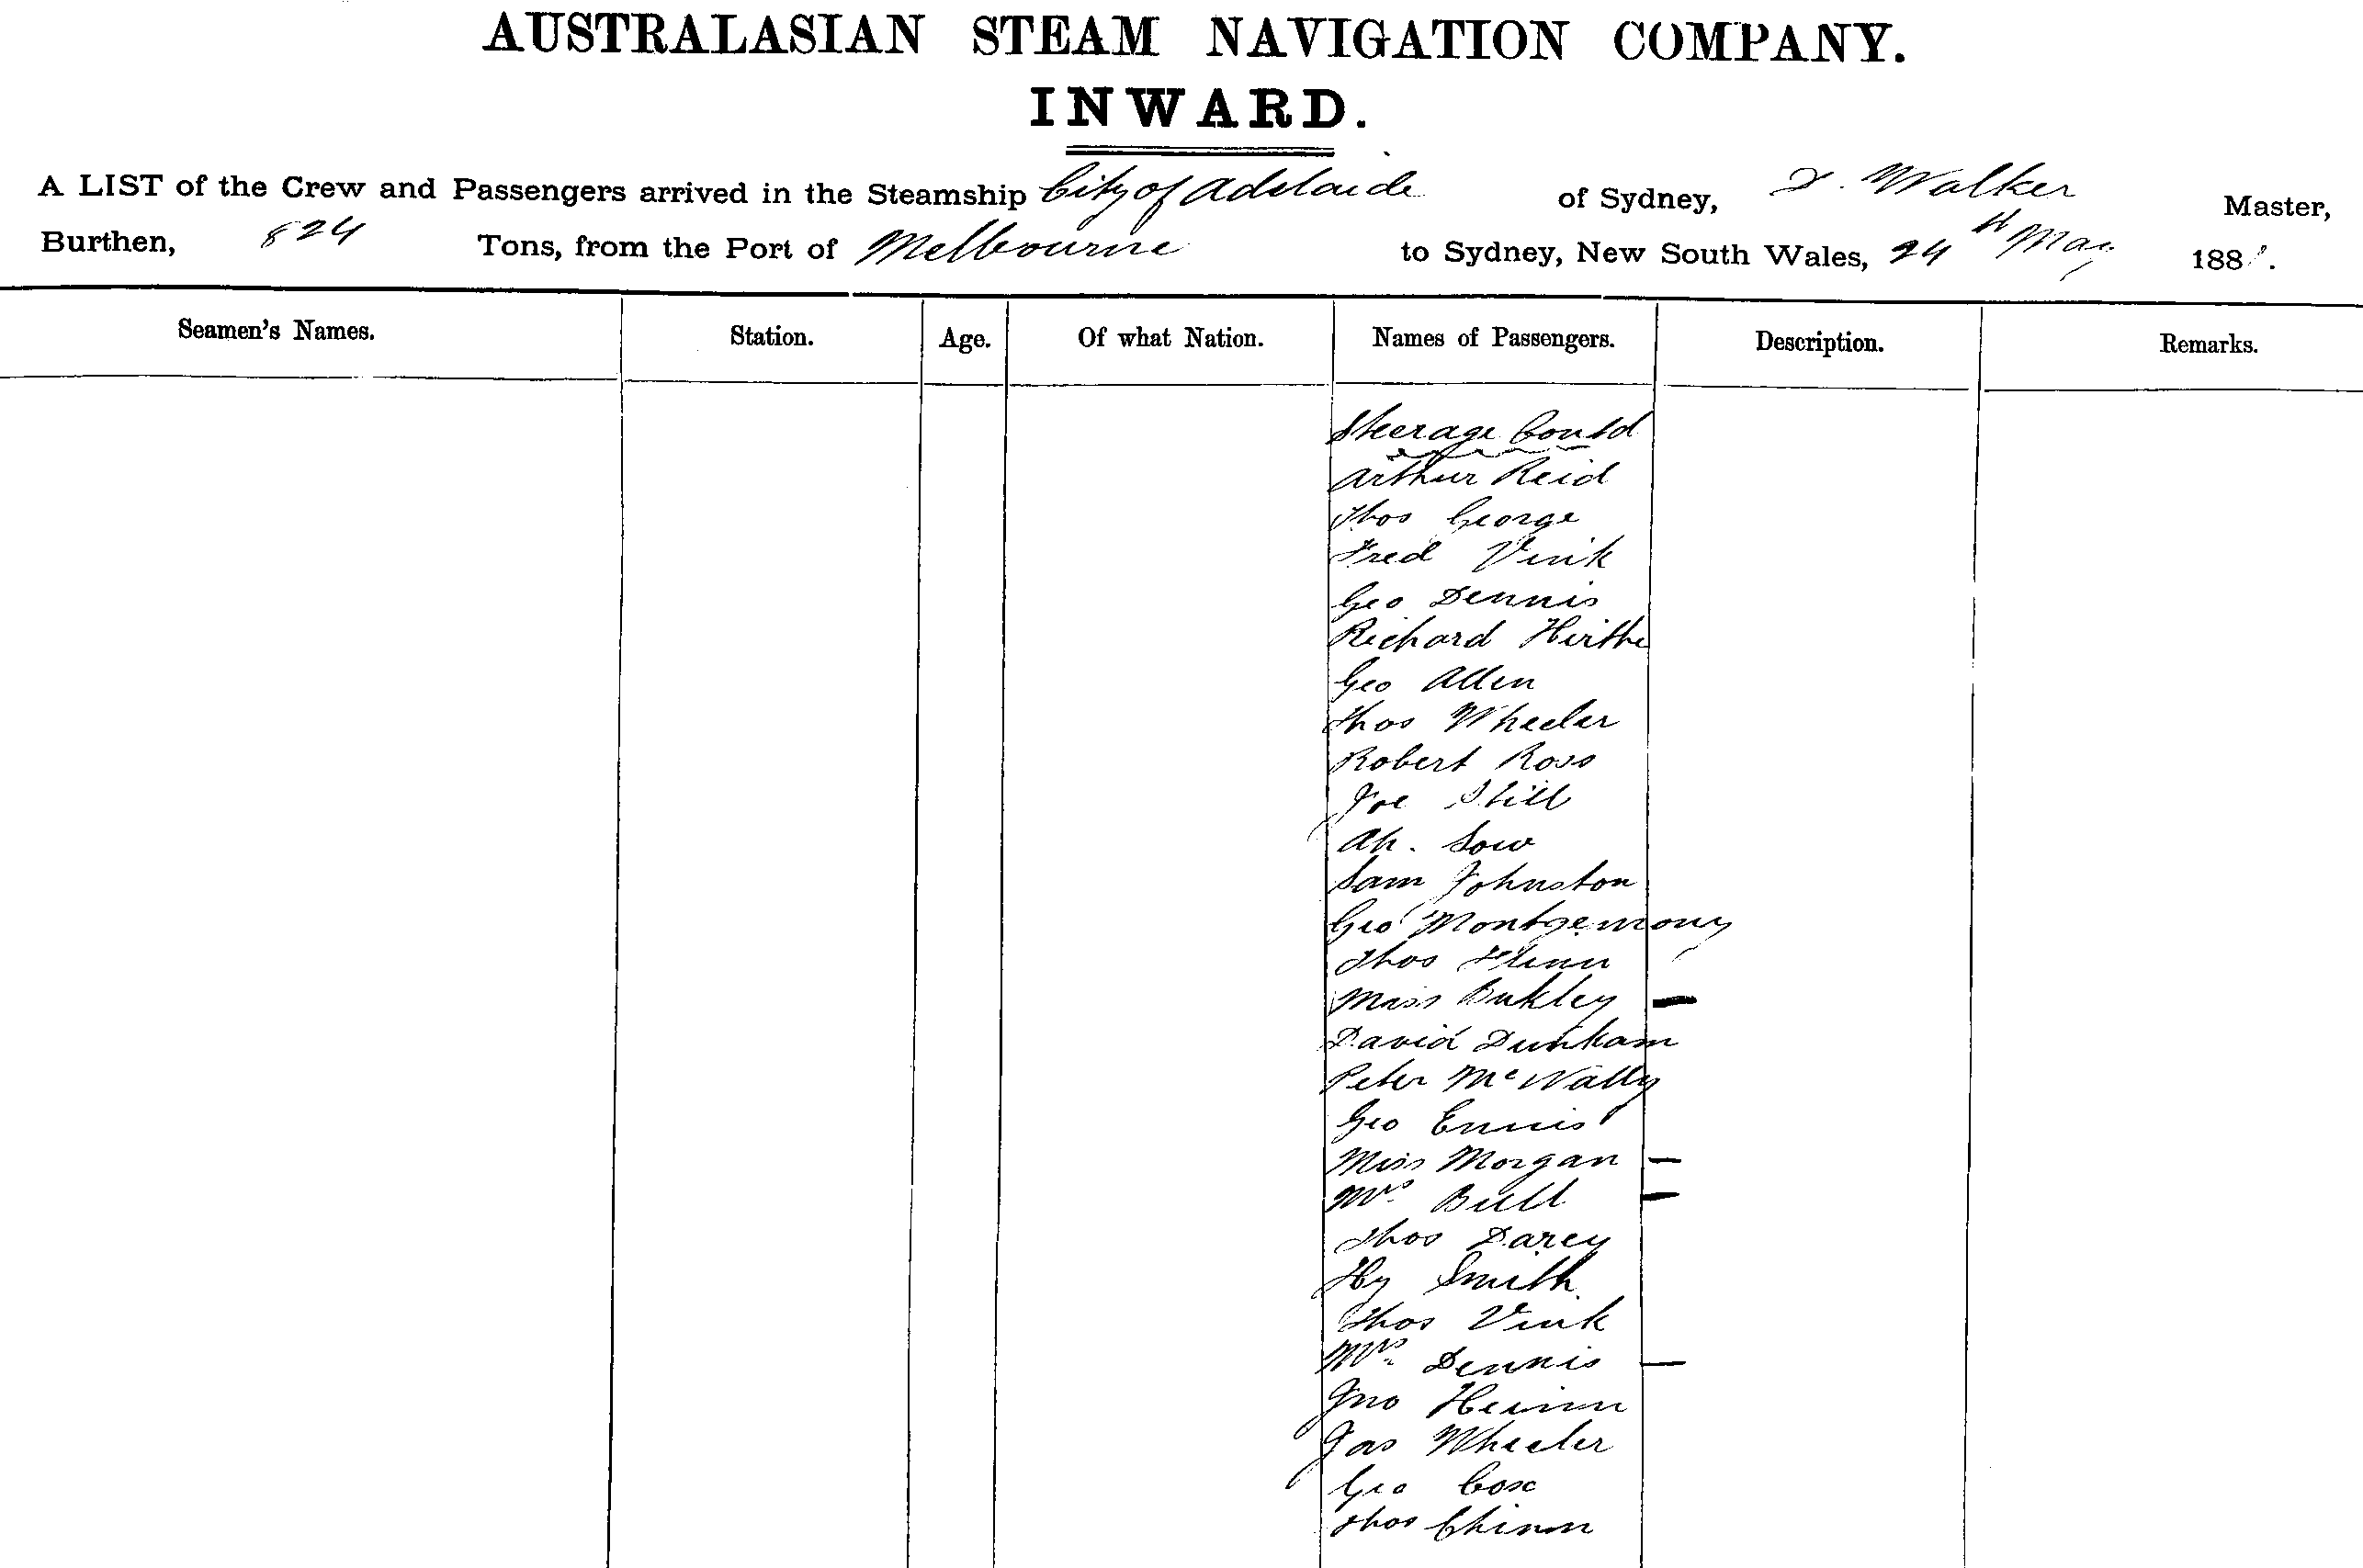 AUSTRALASIAN STEAM NAVIGATION COMPANY.
INWARD.
A LIST of the Crew and Passengers arrived in the Steamship City of Adelaide of Sydney, Walker Master,
Burthen, 824 Tons, from the Port of Melbourne to Sydney, New South Wales, 24th May 188
Seamen's Names. Station. Age. Of what Nation. Names of Passengers. Description. Remarks.
Steerage Contd
Arthur Reid
Thos George
Fred Vink
Geo Dennis
Richard
Geo Allen
Thos Wheeler
Robert Ross
Joe Still
Ah. Sow
Sam Johnston
Geo Montgemory
Thos Flinn
Miss Bukley —
David Dunkam
Peter McNally
Geo Ennis
Miss Morgan —
Mrs Bull —
Thos Darcy
Hy Smith
Thos Vink
Mrs Dennis —
Jno
Jas Wheeler
Geo Cox
Thos Chinn